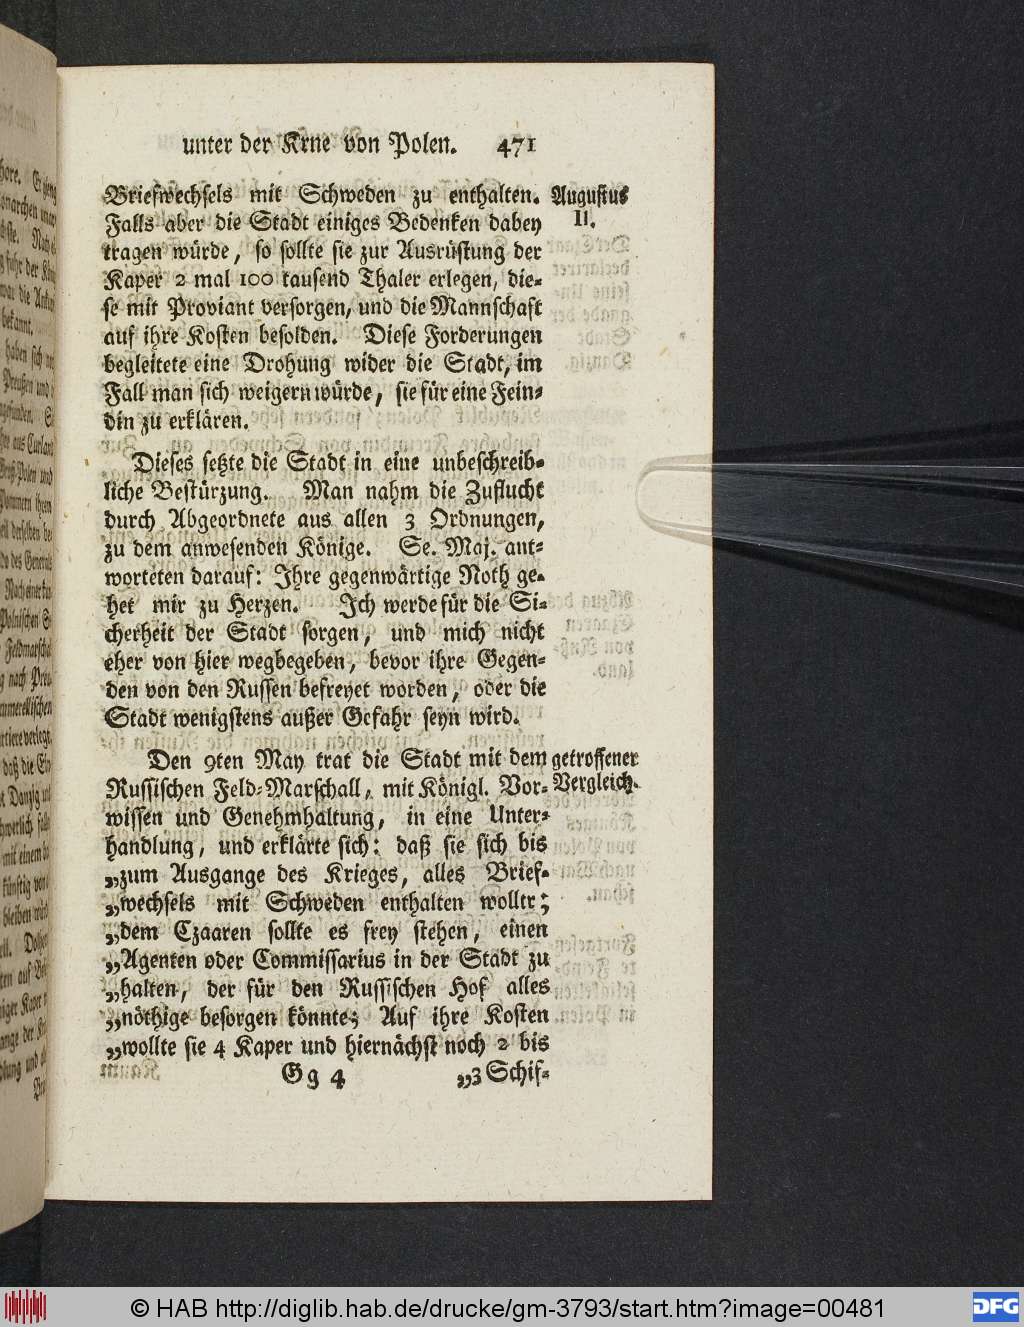 unter der Krne von Polen. 471
Briefwechsels mit Schweden zu enthalten.
Augustus
II.
Falls aber die Stadt einiges Bedenken dabey
tragen würde, so sollte sie zur Ausrüstung der
Kaper 2 mal 100 tausend Thaler erlegen, die-
se mit Proviant versorgen, und die Mannschaft
auf ihre Kosten besolden. Diese Forderungen
begleitete eine Drohung wider die Stadt, im
Fall man sich weigern würde, sie für eine Fein-
din zu erklären.
Dieses setzte die Stadt in eine unbeschreib-
liche Bestürzung. Man nahm die Zuflucht
durch Abgeordnete aus allen 3 Ordnungen,
zu dem anwesenden Könige. Se. Maj. ant-
worteten darauf: Ihre gegenwärtige Noth ge-
het mir zu Herzen. Ich werde für die Si-
cherheit der Stadt sorgen, und mich nicht
eher von hier wegbegeben, bevor ihre Gegen-
den von den Russen befreyet worden, oder die
Stadt wenigstens außer Gefahr seyn wird.
Den 9ten May trat die Stadt mit dem
getroffener
Vergleich.
Russischen Feld-Marschall, mit Königl. Vor-
wissen und Genehmhaltung, in eine Unter-
handlung, und erklärte sich: daß sie sich bis
„zum Ausgange des Krieges, alles Brief-
„wechsels mit Schweden enthalten wolltr;
„dem Czaaren sollte es frey stehen, einen
„Agenten oder Commissarius in der Stadt zu
„halten, der für den Russischen Hof alles
„nöthige besorgen könnte; Auf ihre Kosten
„wollte sie 4 Kaper und hiernächst noch 2 bis
Gg 4
„3 Schif-
© HAB http://diglib.hab.de/drucke/gm-3793/start.htm?image=00481
DFG